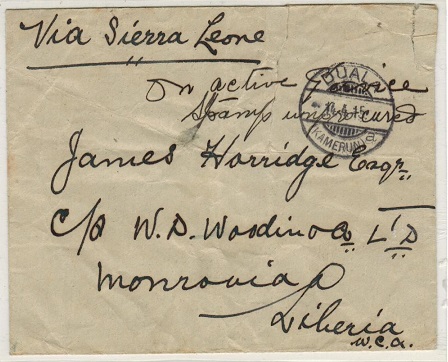 Via Sierra Leone
On active Service
Stamp unprocured
DUALA
4.15
(KAMERUN)
James Horridge Esqr.
C/o W. D. Woodin & Co LTD
Monrovia
Liberia
W.C.A.